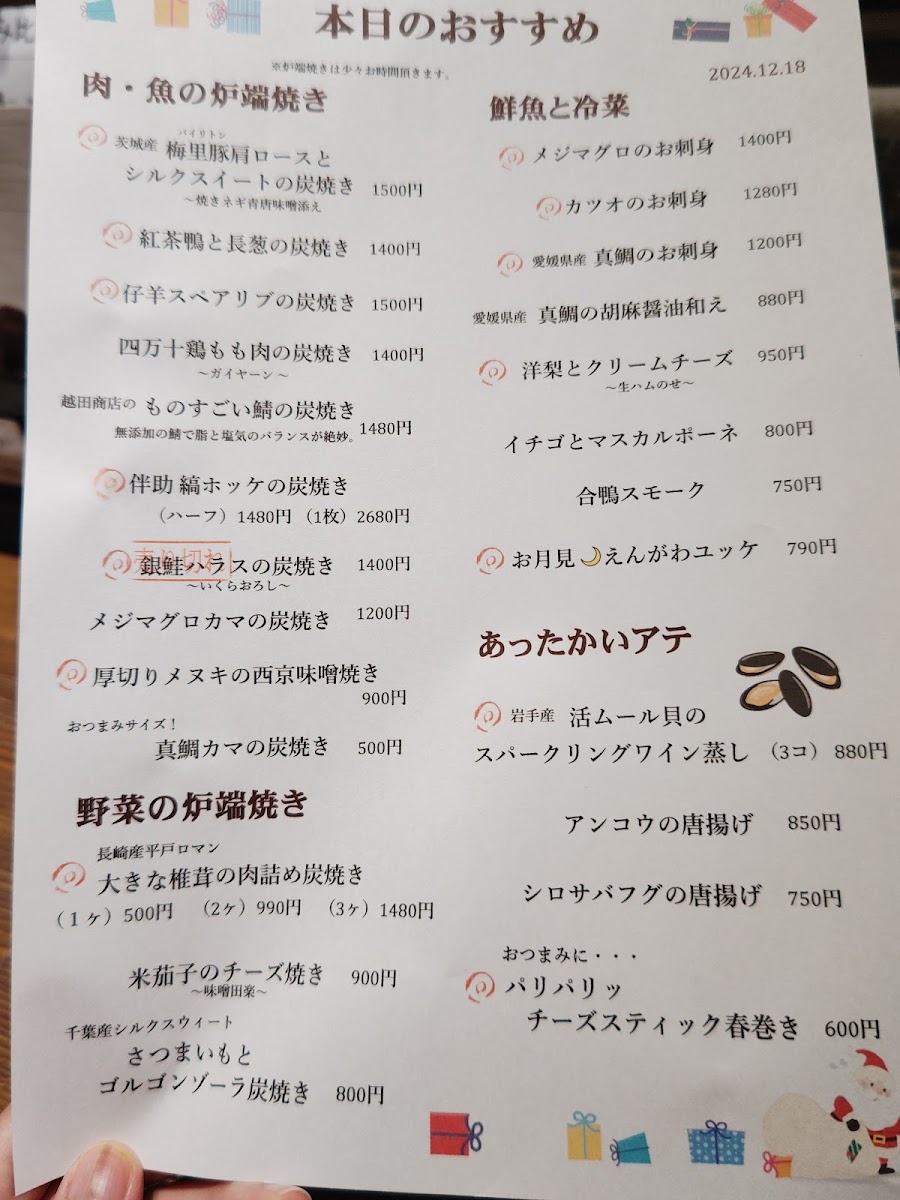 本日のおすすめ
※炉端焼きは少々お時間頂きます。
2024.12.18
肉・魚の炉端焼き
バイリトン
茨城産 梅里豚肩ロースと
シルクスイートの炭焼き 1500円
～焼きネギ青唐味噌添え
紅茶鴨と長葱の炭焼き 1400円
仔羊スペアリブの炭焼き 1500円
四万十鶏もも肉の炭焼き 1400円
～ガイヤーン～
越田商店の ものすごい鯖の炭焼き
無添加の鯖で脂と塩気のバランスが絶妙。 1480円
伴助 縞ホッケの炭焼き
（ハーフ）1480円 （1枚）2680円
売り切れ
銀鮭ハラスの炭焼き 1400円
～いくらおろし～
メジマグロカマの炭焼き 1200円
厚切りメヌキの西京味噌焼き
900円
おつまみサイズ！
真鯛カマの炭焼き 500円
野菜の炉端焼き
長崎産平戸ロマン
大きな椎茸の肉詰め炭焼き
（１ヶ）500円 （2ヶ）990円 （3ヶ）1480円
米茄子のチーズ焼き 900円
～味噌田楽～
千葉産シルクスウィート
さつまいもと
ゴルゴンゾーラ炭焼き 800円
鮮魚と冷菜
メジマグロのお刺身 1400円
カツオのお刺身 1280円
愛媛県産 真鯛のお刺身 1200円
愛媛県産 真鯛の胡麻醤油和え 880円
洋梨とクリームチーズ 950円
～生ハムのせ～
イチゴとマスカルポーネ 800円
合鴨スモーク 750円
お月見🌙えんがわユッケ 790円
あったかいアテ
岩手産 活ムール貝の
スパークリングワイン蒸し （3コ） 880円
アンコウの唐揚げ 850円
シロサバフグの唐揚げ 750円
おつまみに・・・
パリパリッ
チーズスティック春巻き 600円